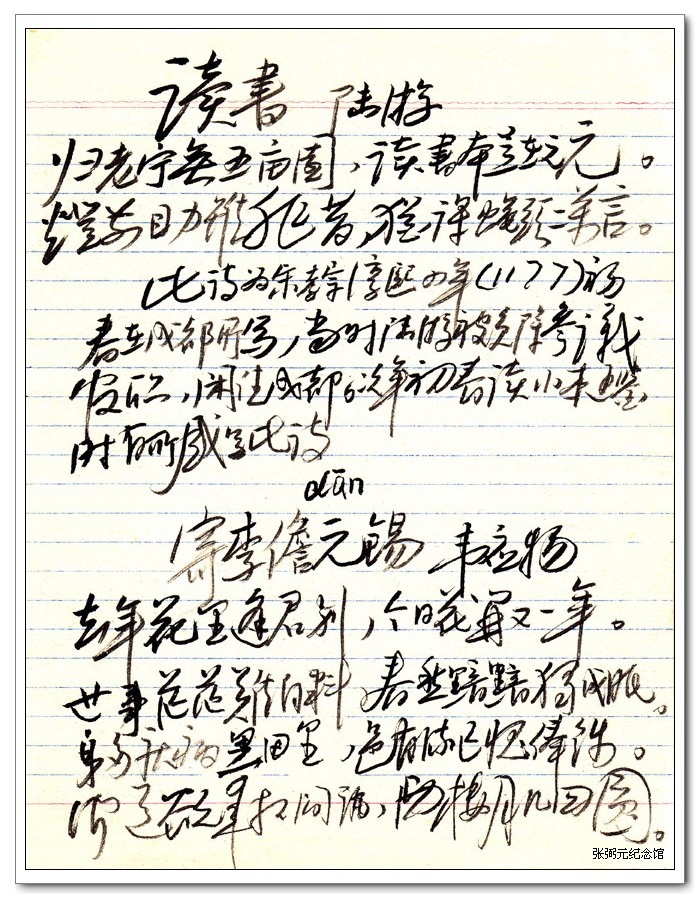 读书 陆游
归老宁无五亩园，读书本意在元元。
灯前目力虽非昔，犹课蝇头二万言。
此诗为宋孝宗淳熙四年(1177)初
春在成都所写，当时陆游被免除参议
官职，闲住成都。次年初春读小
时有所感写此诗
dān
寄李儋元锡 韦应物
去年花里逢君别，今日花开又一年。
世事茫茫难自料，春愁黯黯独成眠。
身多疾病思田里，邑有流亡愧俸钱。
闻道欲来相问讯，西楼望月几回圆。
张弼元纪念馆